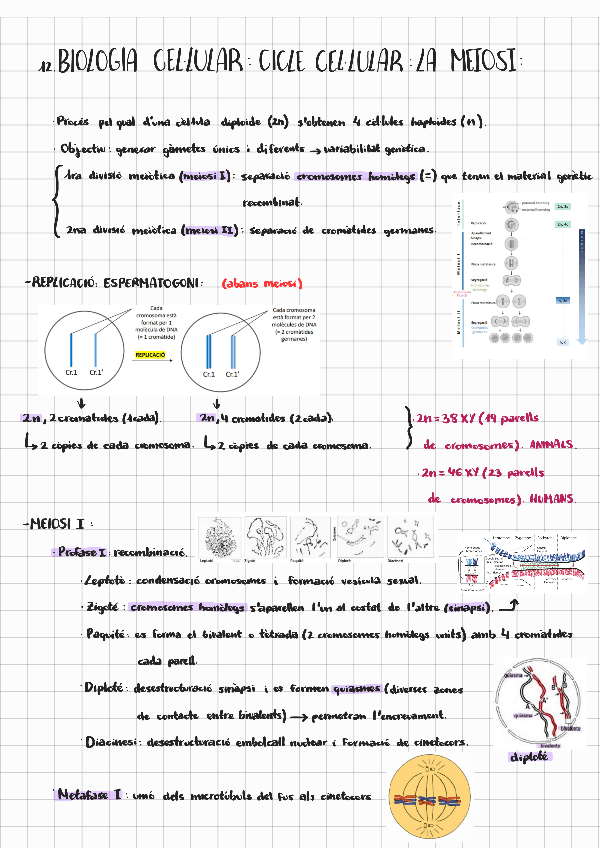 12. BIOLOGIA CEL·LULAR: CICLE CEL·LULAR: LA MEIOSI:
· Procés pel qual d'una cèl·lula diploide (2n) s'obtenen 4 cèl·lules haploides (n).
· Objectiu: generar gàmetes únics i diferents → variabilitat genètica.
1ra divisió meiòtica (meiosi I): separació cromosomes homòlegs (=) que tenen el material genètic
recombinat.
2na divisió meiòtica (meiosi II): separació de cromàtides germanes.
-REPLICACIÓ: ESPERMATOGONI: (abans meiosi)
Cada
cromosoma està
format per 1
molècula de DNA
(= 1 cromàtide)
Cada cromosoma
està format per 2
molècules de DNA
(= 2 cromàtides
germanes)
REPLICACIÓ
Cr.1 Cr.1'
Cr.1 Cr.1'
2n, 2 cromàtides (1cada).
↳ 2 còpies de cada cromosoma.
2n, 4 cromàtides (2cada).
↳ 2 còpies de cada cromosoma.
· 2n = 38 XY (19 parells
de cromosomes). ANIMALS.
· 2n = 46 XY (23 parells
de cromosomes). HUMANS.
-MEIOSI I:
· Profase I: recombinació.
Leptotè Zigotè Paquitè Diplotè Diacinesi
· Leptotè: condensació cromosomes i formació vesícula sexual.
· Zigotè: cromosomes homòlegs s'aparellen l'un al costat de l'altre (sinapsi).
· Paquitè: es forma el bivalent o tètrada (2 cromosomes homòlegs units) amb 4 cromàtides
cada parell.
· Diplotè: desestructuració sinàpsi i es formen quiasmes (diverses zones
de contacte entre bivalents) → permetran l'encreuament.
· Diacinesi: desestructuració embolcall nuclear i formació de cinetocors.
quiasma
A A' B B'
quiasma
bivalente
bivalente
diplotè
· Metafase I: unió dels microtúbuls del fus als cinetocors